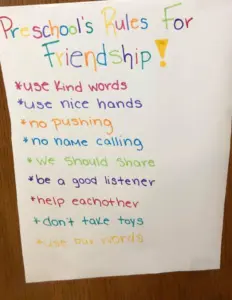 Preschool's Rules For
Friendship!
*use kind words
*use nice hands
*no pushing
*no name calling
*we should share
*be a good listener
*help eachother
*don't take toys
*use our words